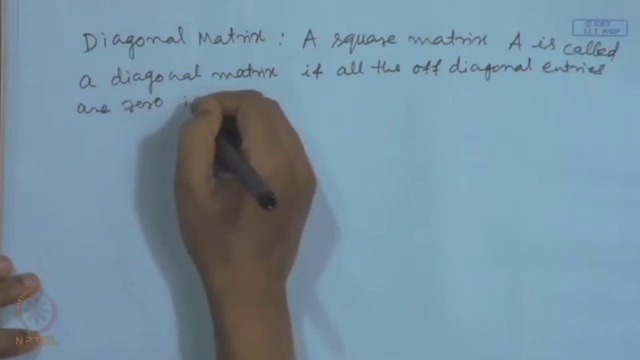 © CET
I.I.T. KGP
Diagonal Matrix : A square matrix A is called
a diagonal matrix if all the off diagonal entries
are zero i
NPTEL